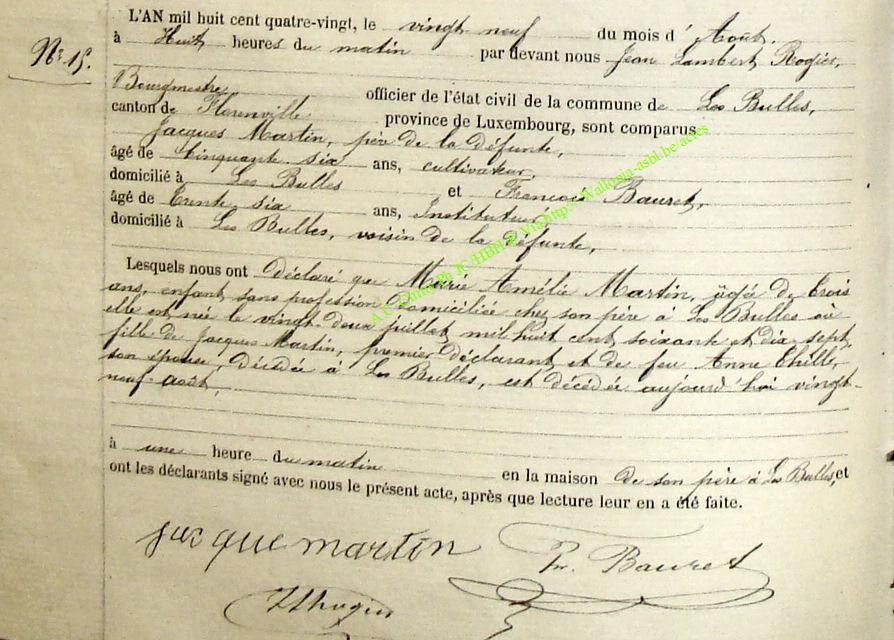 L'AN mil huit cent quatre-vingt, le vingt neuf du mois d'Août.
N° 15.
à Huit heures du matin par devant nous Jean Lambert Rogier,
Bourgmestre officier de l'état civil de la commune de Les Bulles,
canton de Florenville province de Luxembourg, sont comparus
Jacques Martin, père de la défunte,
âgé de Cinquante six ans, cultivateur,
domicilié à Les Bulles et François Bauret,
âgé de trente six ans, Instituteur
domicilié à Les Bulles, voisin de la défunte,
Lesquels nous ont déclaré que Marie Amélie Martin, âgée de trois
ans, enfant, sans profession domiciliée chez son père à Les Bulles où
elle est née le vingt-deux juillet mil huit cent soixante et dix sept,
fille de Jacques Martin, premier déclarant et de feu Anne Thille,
son épouse, décédée à Les Bulles, est décédée aujourd'hui vingt-
neuf août,
à une heure du matin en la maison de son père à Les Bulles, et
ont les déclarants signé avec nous le présent acte, après que lecture leur en a été faite.
jacque martin
Fr. Bauret